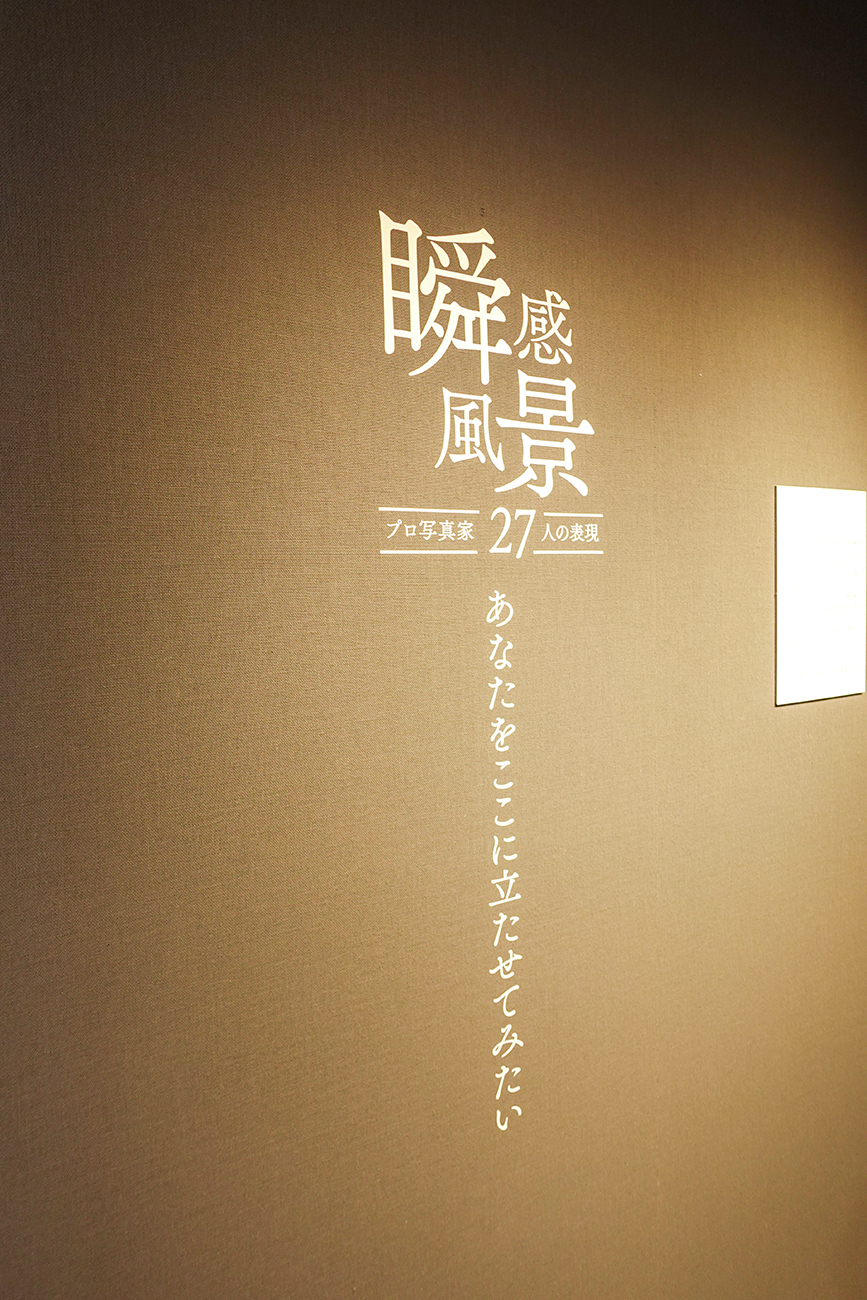 瞬感
風景
プロ写真家27人の表現
あなたをここに立たせてみたい